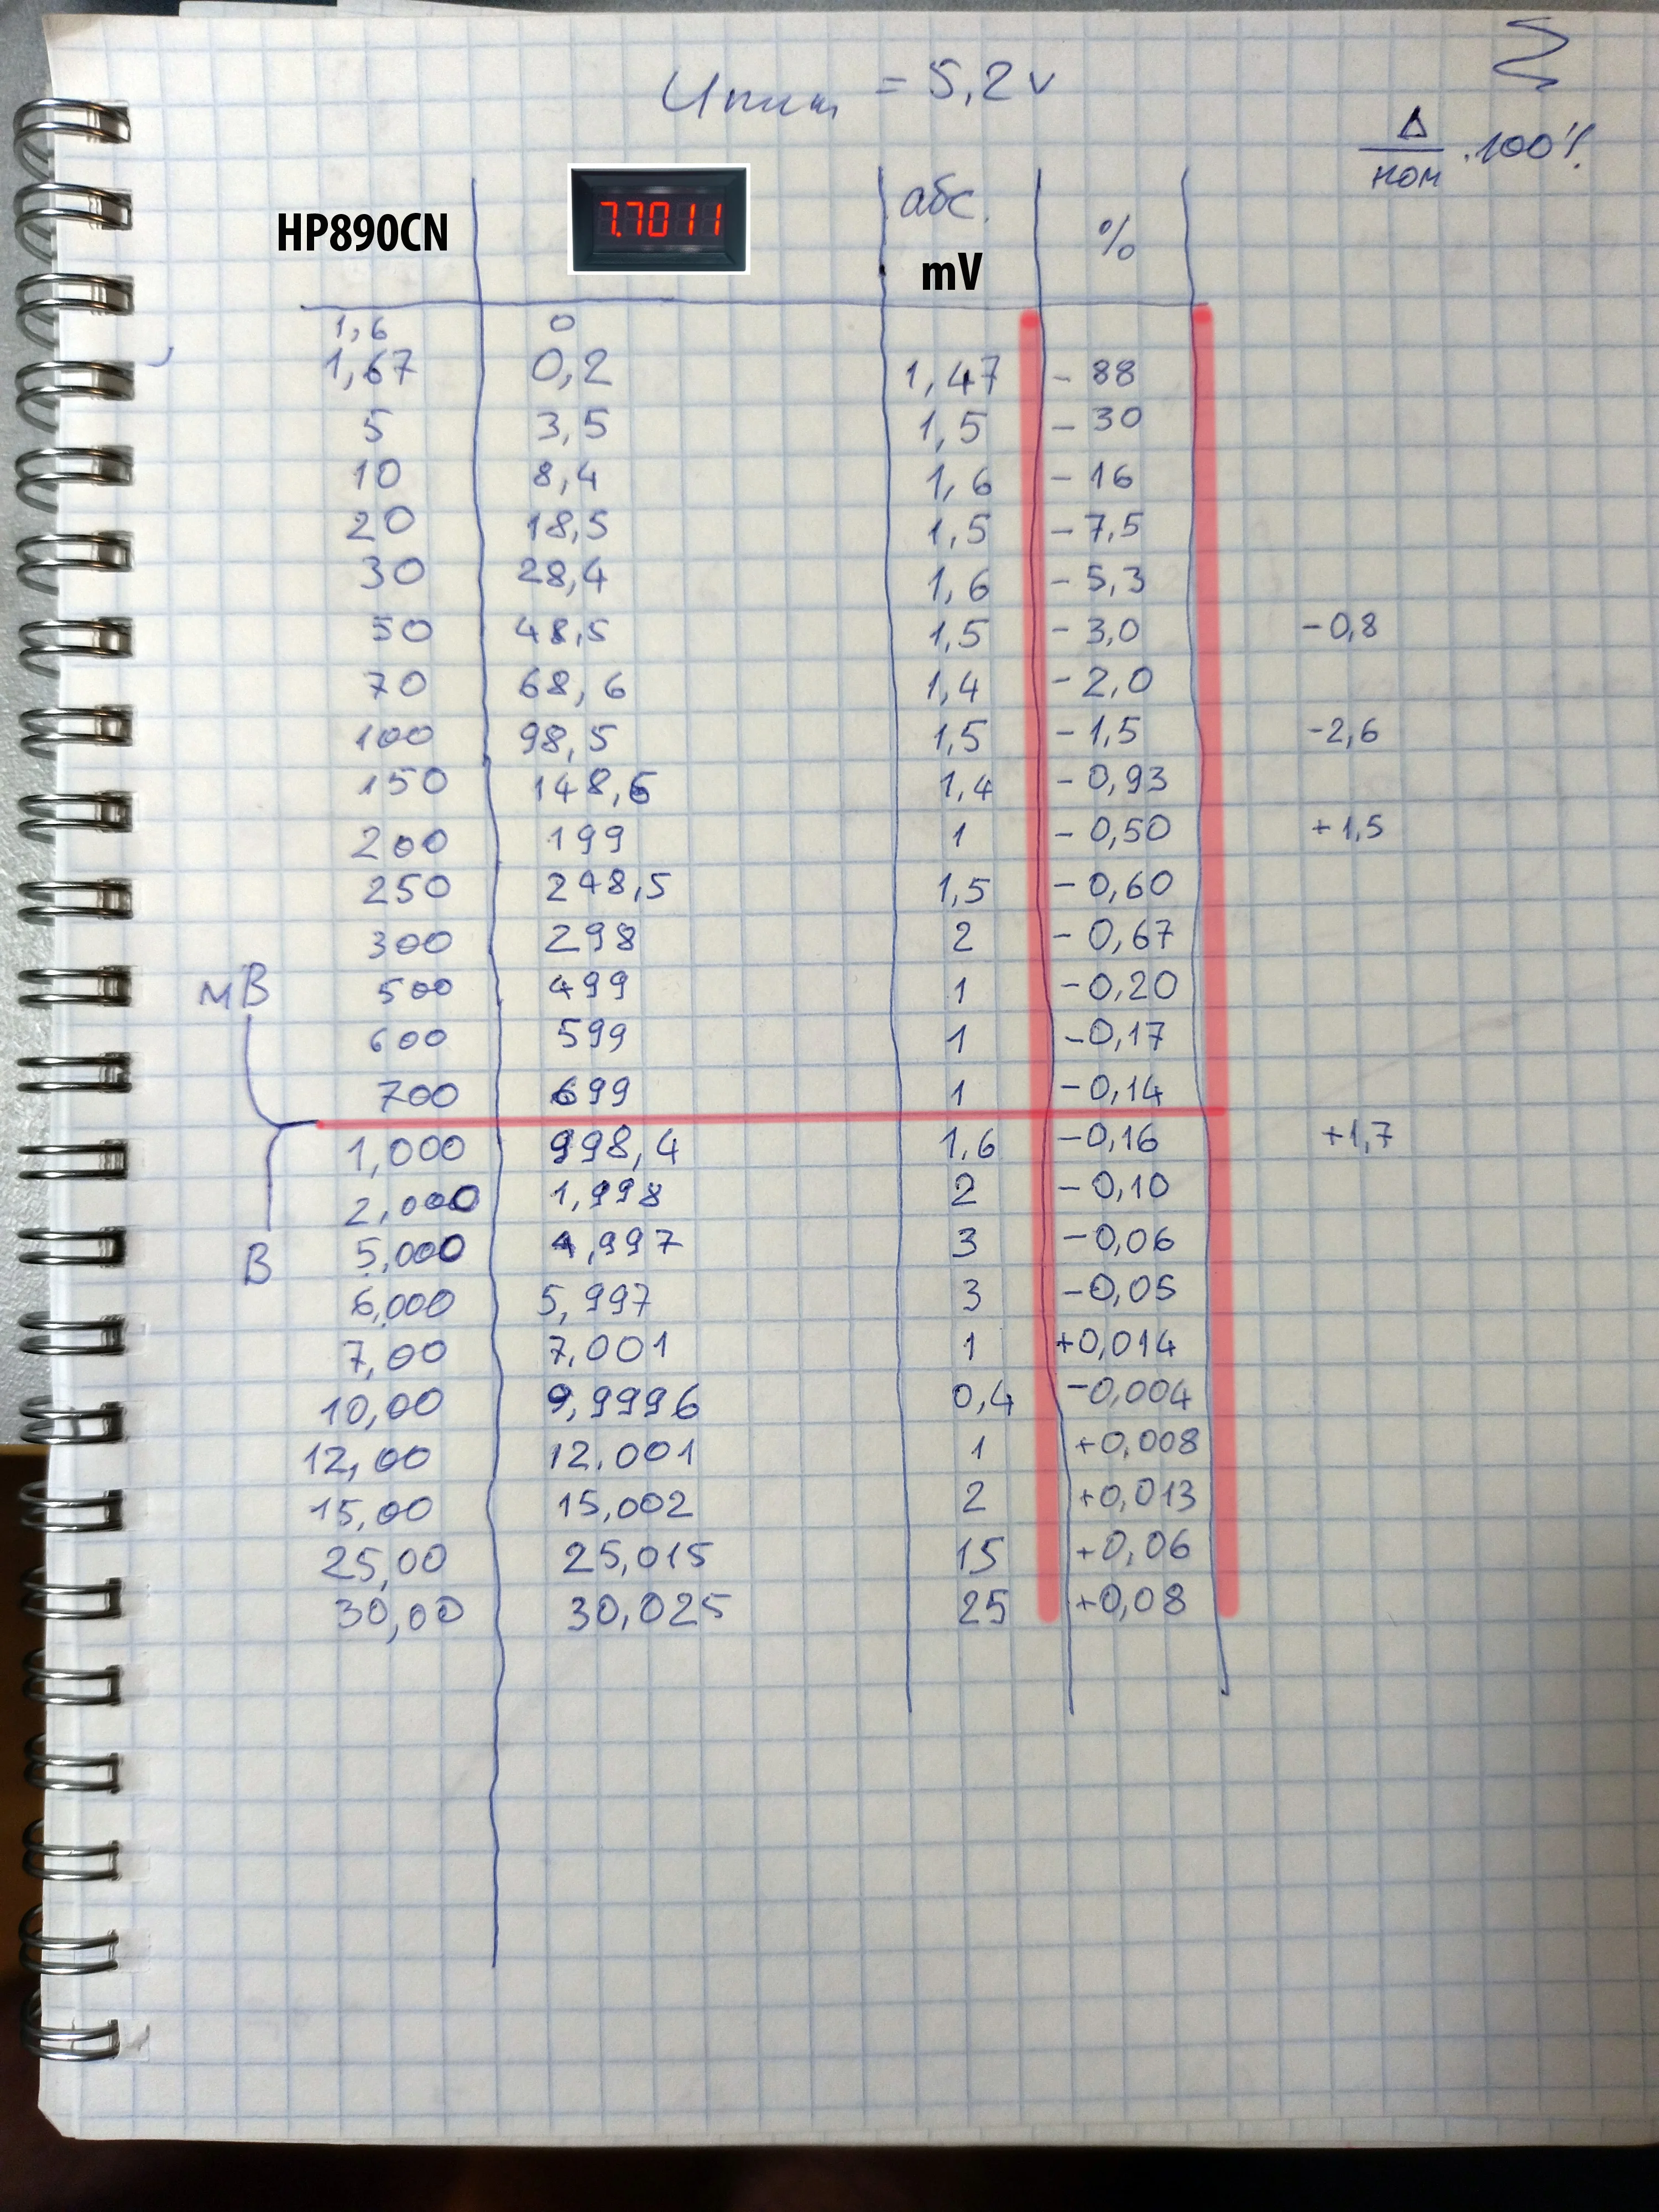 Uпит = 5,2 v
Δ/ном · 100%
HP890CN 7.7011 абс. mV %
1,6 0
1,67 0,2 1,47 - 88
5 3,5 1,5 - 30
10 8,4 1,6 - 16
20 18,5 1,5 - 7,5
30 28,4 1,6 - 5,3
50 48,5 1,5 - 3,0 -0,8
70 68,6 1,4 - 2,0
100 98,5 1,5 - 1,5 -2,6
150 148,6 1,4 - 0,93
200 199 1 - 0,50 +1,5
250 248,5 1,5 - 0,60
300 298 2 - 0,67
мВ 500 499 1 -0,20
600 599 1 -0,17
700 699 1 -0,14
1,000 998,4 1,6 -0,16 +1,7
2,000 1,998 2 -0,10
В 5,000 4,997 3 -0,06
6,000 5,997 3 -0,05
7,00 7,001 1 +0,014
10,00 9,9996 0,4 -0,004
12,00 12.001 1 +0,008
15,00 15,002 2 +0,013
25,00 25,015 15 +0,06
30,00 30,025 25 +0,08